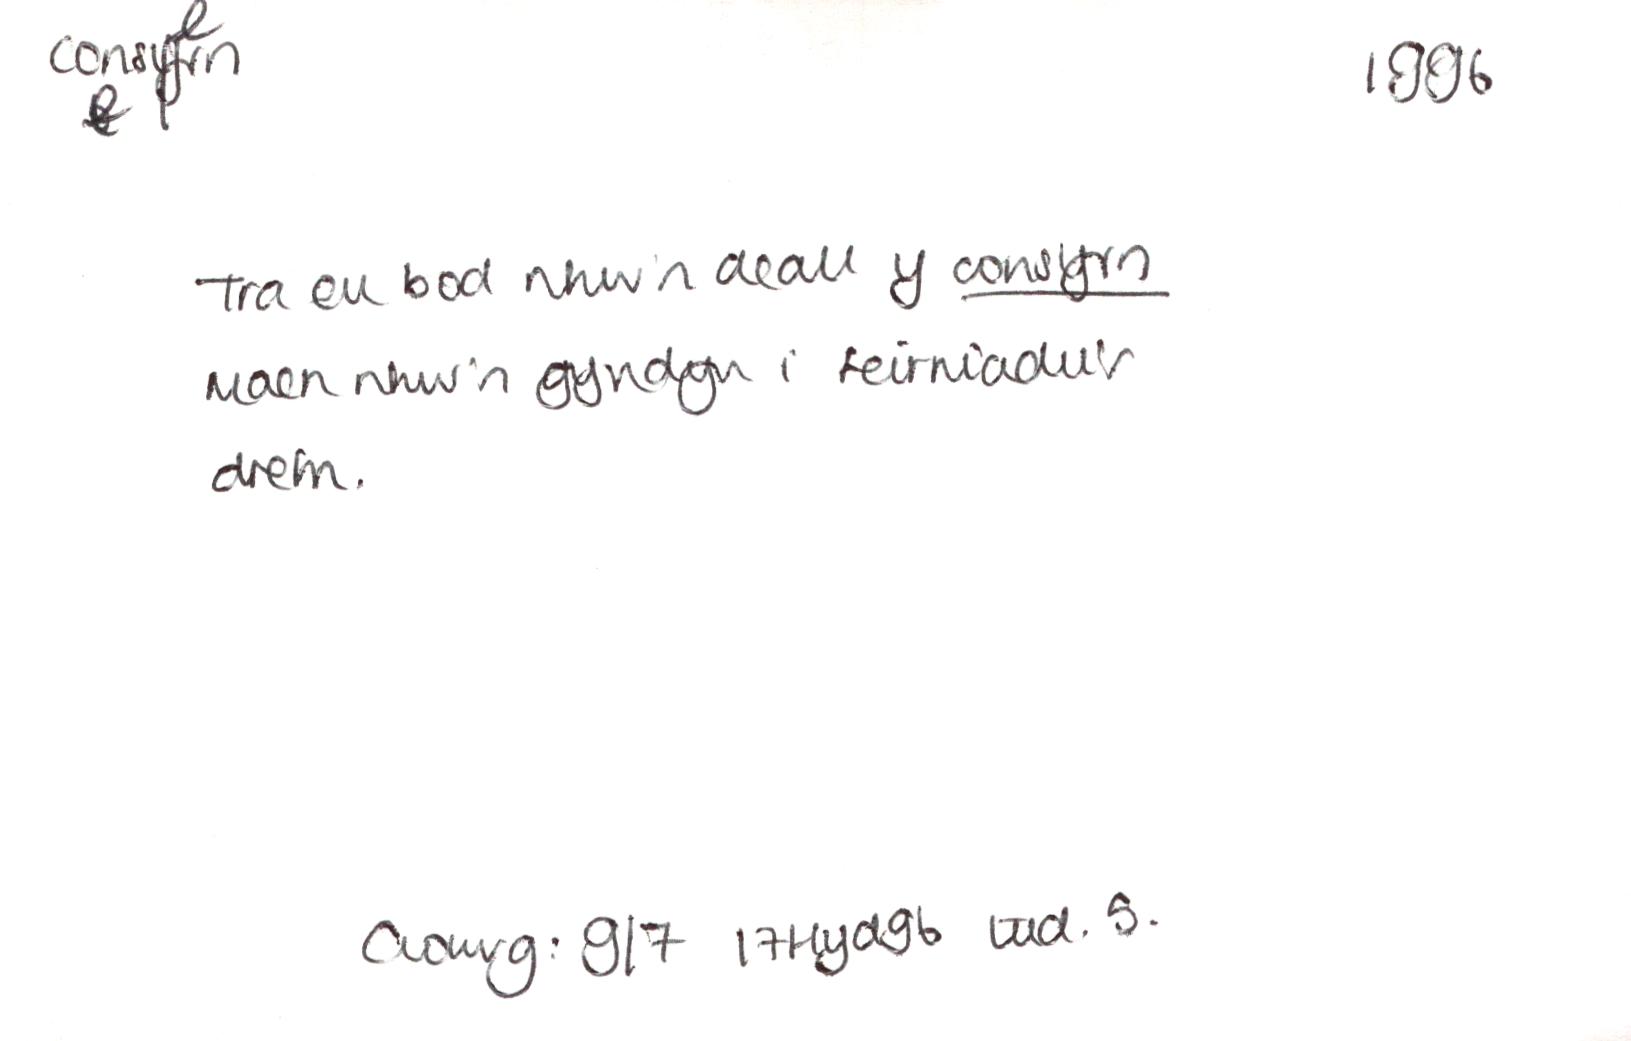 consyrn
1996
Tra eu bod nhw'n deall y consyrn
maen nhw'n gyndyn i feirniadu'r
drefn.
Golwg: 9/7 17Hyd96 tud. 5.